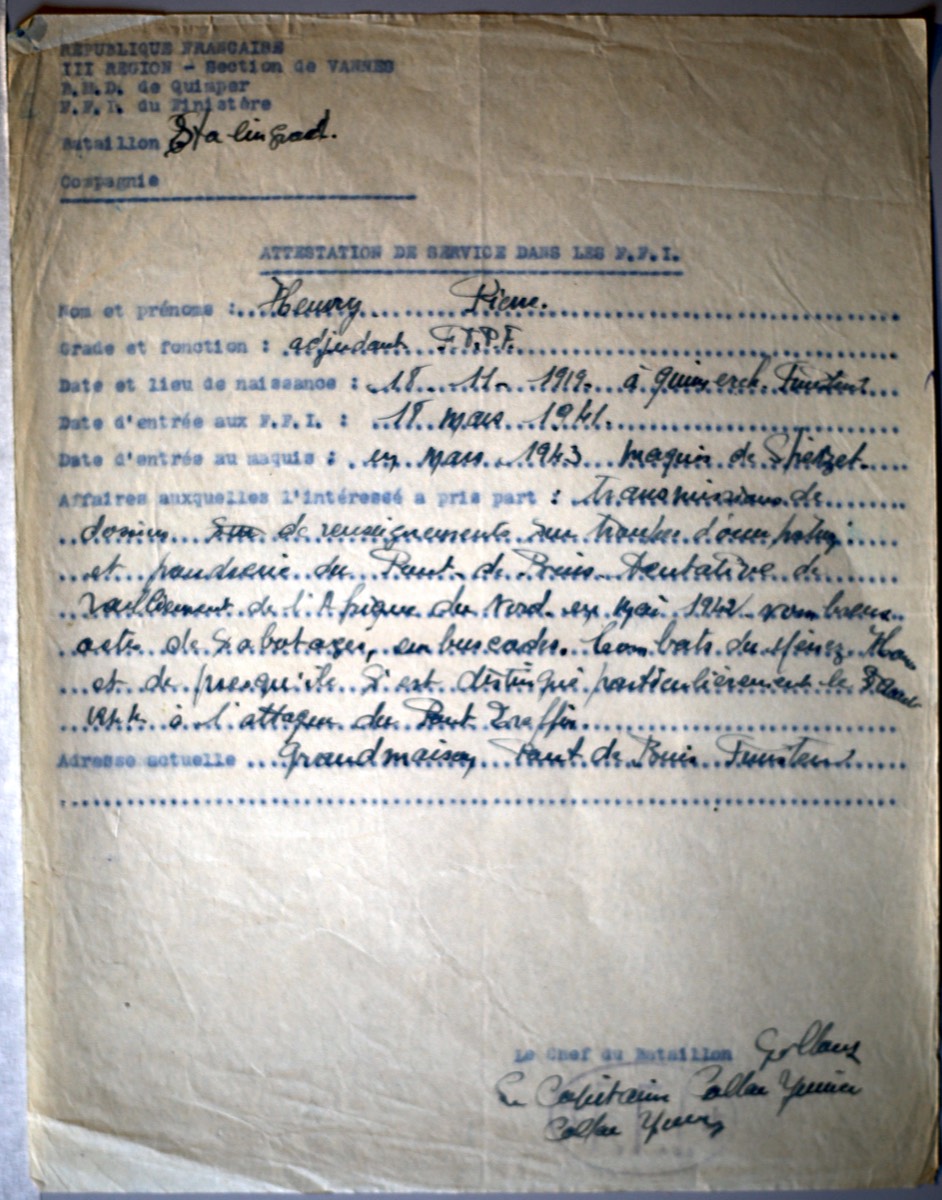 REPUBLIQUE FRANCAISE
III REGION - Section de VANNES
B.M.D. de Quimper
F.F.I. du Finistère
Bataillon Stalingrad.
Compagnie
ATTESTATION DE SERVICE DANS LES F.F.I.
Nom et prénoms : Henry Pierre.
Grade et fonction : adjudant F.T.P.F.
Date et lieu de naissance : 18 11 1919. à Quimerch. Finistère
Date d'entrée aux F.F.I. : 18 mars 1941.
Date d'entrée au maquis : en mars 1943 maquis de Spézet.
Affaires auxquelles l'intéressé a pris part : transmissions de
dossiers de renseignements sur troupes d'occupation
et poudrerie du Pont-de-Buis. Tentative de
ralliement de l'Afrique du Nord en Mai 1942 nombreux
actes de Sabotages, embuscades. Combats du Ménez-Hom
et de presqu'île S'est distingué particulièrement le
à l'attaque du Pont
Adresse actuelle Grandmaison Pont de Buis Finistère
Le Chef du Bataillon
Le Capitaine